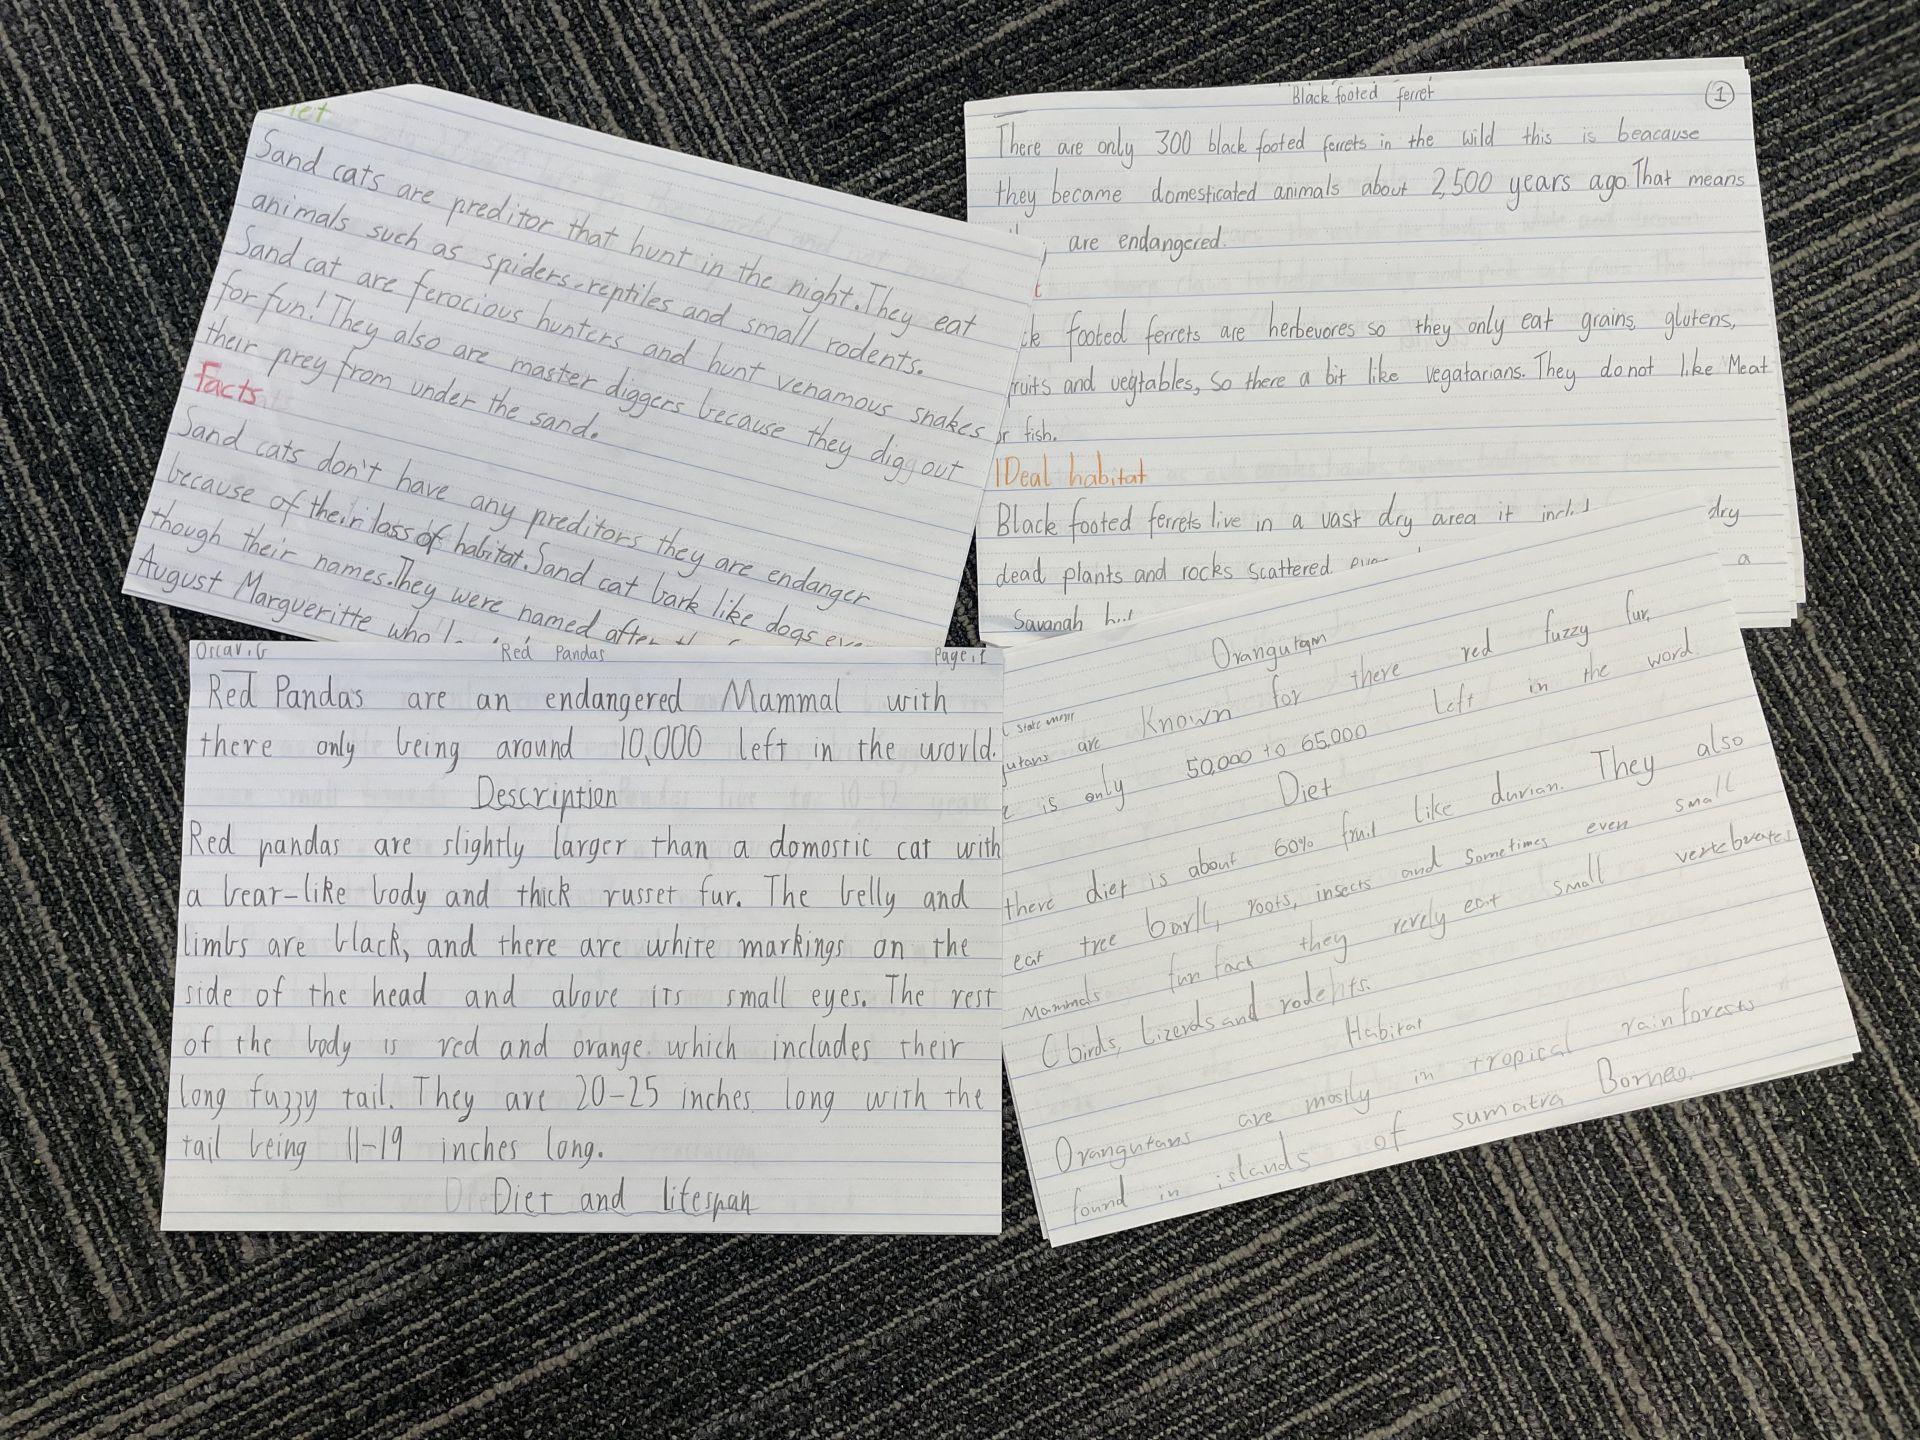 Sand cats are preditor that hunt in the night. They eat
animals such as spiders, reptiles and small rodents.
Sand cat are ferocious hunters and hunt venamous snakes
for fun! They also are master diggers because they digg out
their prey from under the sand.
Facts
Sand cats don't have any preditors they are endanger
because of their loss of habitat. Sand cat bark like dogs
though their names. They were named after
August Margueritte who
Black footed ferret
1
There are only 300 black footed ferrets in the wild this is beacause
they became domesticated animals about 2,500 years ago. That means
are endangered.
footed ferrets are herbevores so they only eat grains, glutens,
fruits and vegtables, So there a bit like vegatarians. They do not like Meat
or fish.
IDeal habitat
Black footed ferrets live in a vast dry area it dry
dead plants and rocks scattered. a
Savanah
Oscar.G Red Pandas Page.1
Red Pandas are an endangered Mammal with
there only being around 10,000 left in the world.
Description
Red pandas are slightly larger than a domostic cat with
a bear-like body and thick russet fur. The belly and
limbs are black, and there are white markings on the
side of the head and above its small eyes. The rest
of the body is red and orange which includes their
long fuzzy tail. They are 20-25 inches long with the
tail being 11-19 inches long.
Diet and lifespan
Orangutan
are Known for there red fuzzy fur,
is only 50,000 to 65,000 Left in the word.
Diet
there diet is about 60% fruit like durian. They also
eat tree bark, roots, insects and sometimes even small
Mammals fun fact they rerely eat small vertebrates
(birds, Lizerds and rodents.
Habitat
Orangutans are mostly in tropical rainforests
found in islands of sumatra Borneo.